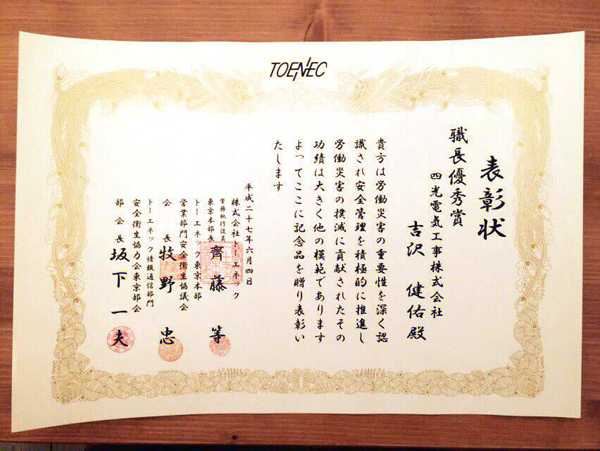 TOENEC
表彰状
職長優秀賞
四光電気工事株式会社
吉沢 健佑殿
貴方は労働災害の重要性を深く認
識され安全管理を積極的に推進し
労働災害の撲滅に貢献されたその
功績は大きく他の模範であります
よってここに記念品を贈り表彰い
たします
平成二十七年六月四日
株式会社トーエネック
常務執行役員
東京本部長 齊藤 等
トーエネック東京本部
営業部門安全衛生協議会
会長 牧野 忠
トーエネック情報通信部門
安全衛生協力会東京部会
部会長 坂下 一夫